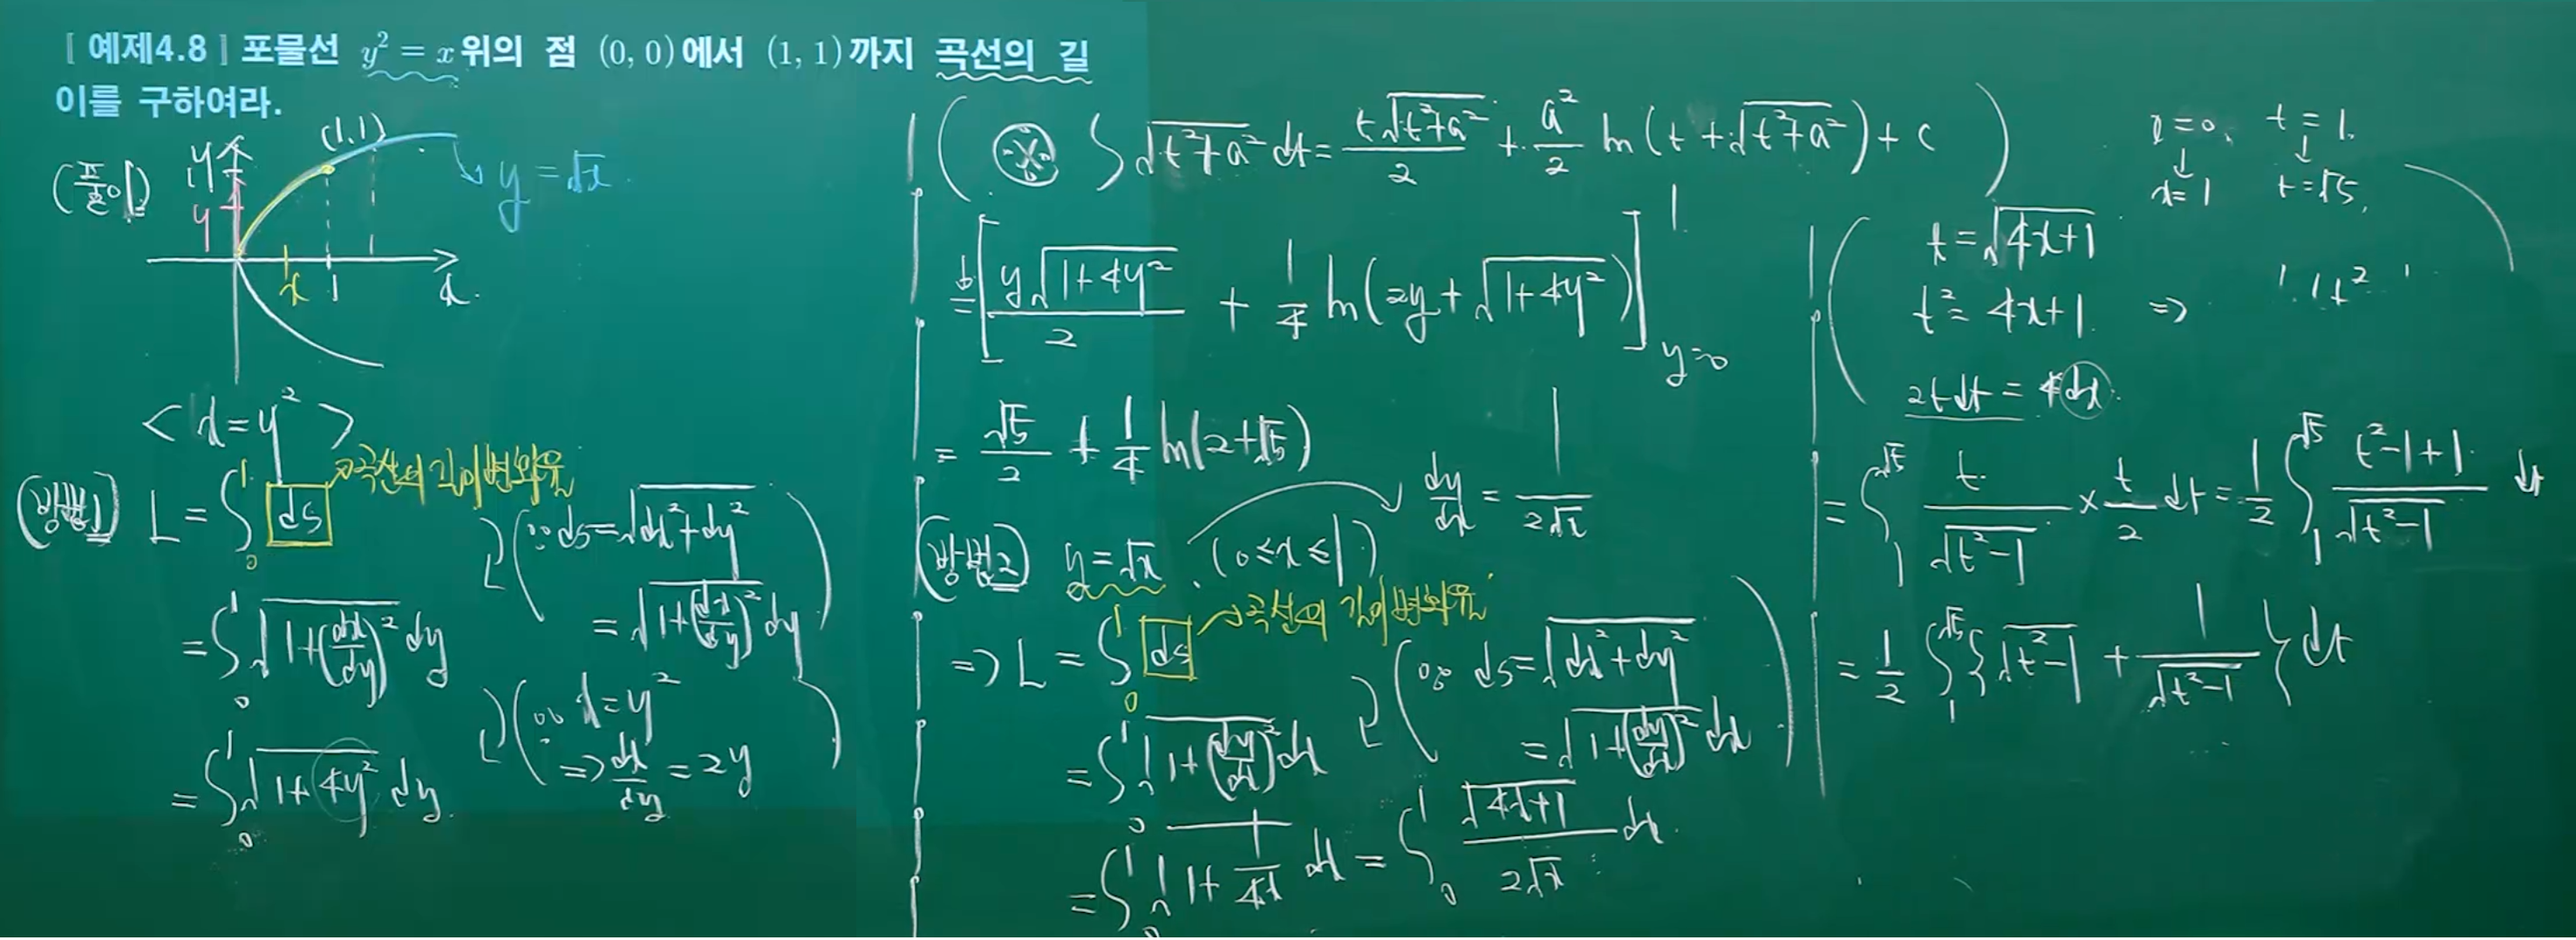 [ 예제4.8 ] 포물선 y² = x 위의 점 (0, 0)에서 (1, 1)까지 곡선의 길
이를 구하여라.
(풀이)
y
(1,1)
y = √x
1
y
x
1
x
< x = y² >
(방법1) L = ∫₀¹ ds → 곡선의 길이 변화율
(∵ ds = √(dx²+dy²)
= √(1+(dx/dy)²) dy)
= ∫₀¹ √(1+(dx/dy)²) dy
(∵ x = y²
⇒ dx/dy = 2y)
= ∫₀¹ √(1+4y²) dy
(※ ∫ √(t²+a²) dt = t√(t²+a²)/2 + a²/2 ln(t+√(t²+a²)) + C)
= [ y√(1+4y²)/2 + 1/4 ln(2y+√(1+4y²)) ]¹ y=0
= √5/2 + 1/4 ln(2+√5)
(방법2) y = √x . (0≤x≤1)
dy/dx = 1/(2√x)
⇒ L = ∫₀¹ ds → 곡선의 길이 변화율
(∵ ds = √(dx²+dy²)
= √(1+(dy/dx)²) dx)
= ∫₀¹ √(1+(dy/dx)²) dx
= ∫₀¹ √(1+1/(4x)) dx = ∫₀¹ √(4x+1)/(2√x) dx
t = 1.
t = √5,
t = √(4x+1)
t² = 4x+1 ⇒
2t dt = 4dx
= ∫₁^√5 t/√(t²-1) × t/2 dt = 1/2 ∫₁^√5 (t²-1+1)/√(t²-1) dt
= 1/2 ∫₁^√5 { √(t²-1) + 1/√(t²-1) } dt